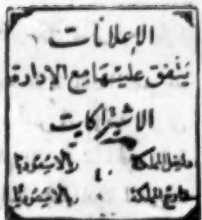 الإعلانات
يتفق عليها مع الإدارة
الاشتراكات
داخل المملكة ٤٠ ريالا سعوديا
خارج المملكة ريالا سعوديا